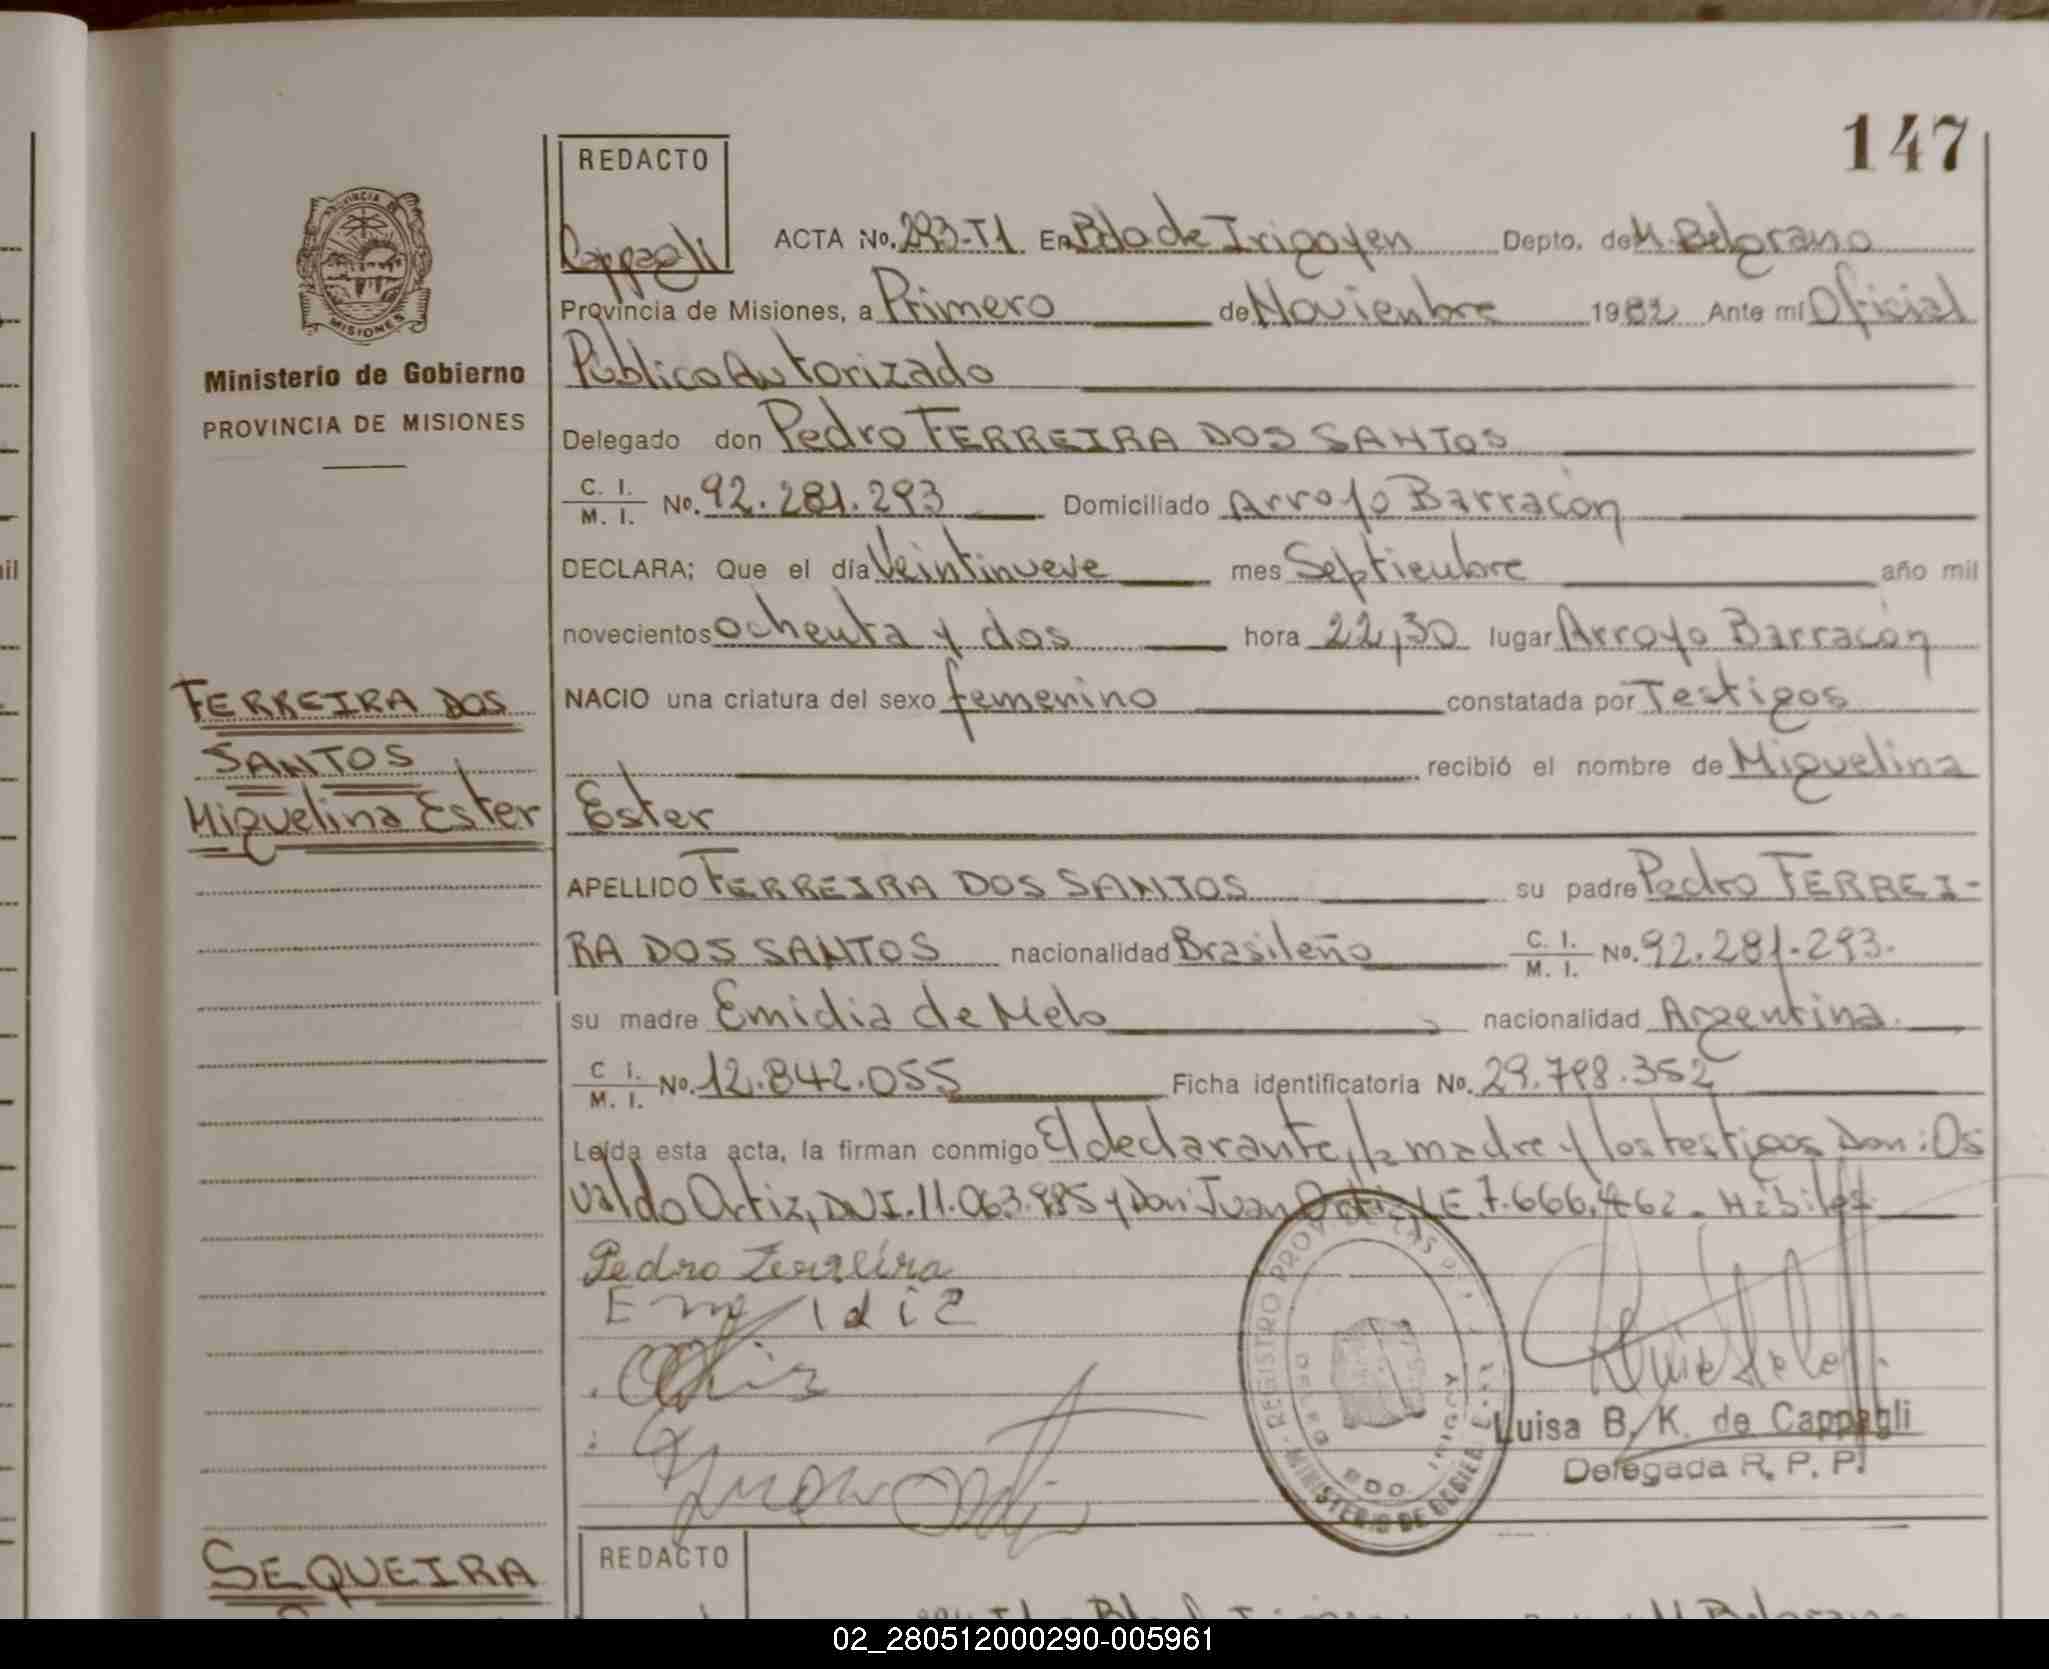 147
REDACTO
Cappagli
ACTA No. 293-T1 En Bdo de Irigoyen Depto. de M. Belgrano
Provincia de Misiones, a Primero de Noviembre 1982 Ante mí Oficial
Público Autorizado
Delegado don Pedro FERREIRA DOS SANTOS
C. I. / M. I. No. 92.281.293 Domiciliado Arroyo Barracón
DECLARA; Que el día Veintinueve mes Septiembre año mil
novecientos ochenta y dos hora 22,30 lugar Arroyo Barracón
NACIO una criatura del sexo femenino constatada por Testigos
recibió el nombre de Miguelina
Ester
APELLIDO FERREIRA DOS SANTOS su padre Pedro FERREI-
RA DOS SANTOS nacionalidad Brasileño C. I. / M. I. No. 92.281.293.
su madre Emidia de Melo nacionalidad Argentina.
C I. / M. I. No. 12.842.055 Ficha identificatoria No. 29.798.352
Leída esta acta, la firman conmigo El declarante, la madre y los testigos Don: Os
valdo Ortiz, DNI. 11.063.985 y Don Juan Ortiz, LE. 7.666.462. Hábiles
Pedro Ferreira
Emidia
Ortiz
Juan Ortiz
REGISTRO PROV. DE LAS
MINISTERIO DE GOBIERNO
BDO. IRIGOY
Luisa B. K. de Cappagli
Delegada R. P. P.
PROVINCIA DE
MISIONES
Ministerio de Gobierno
PROVINCIA DE MISIONES
FERREIRA DOS
SANTOS
Miguelina Ester
SEQUEIRA
REDACTO
02_280512000290-005961